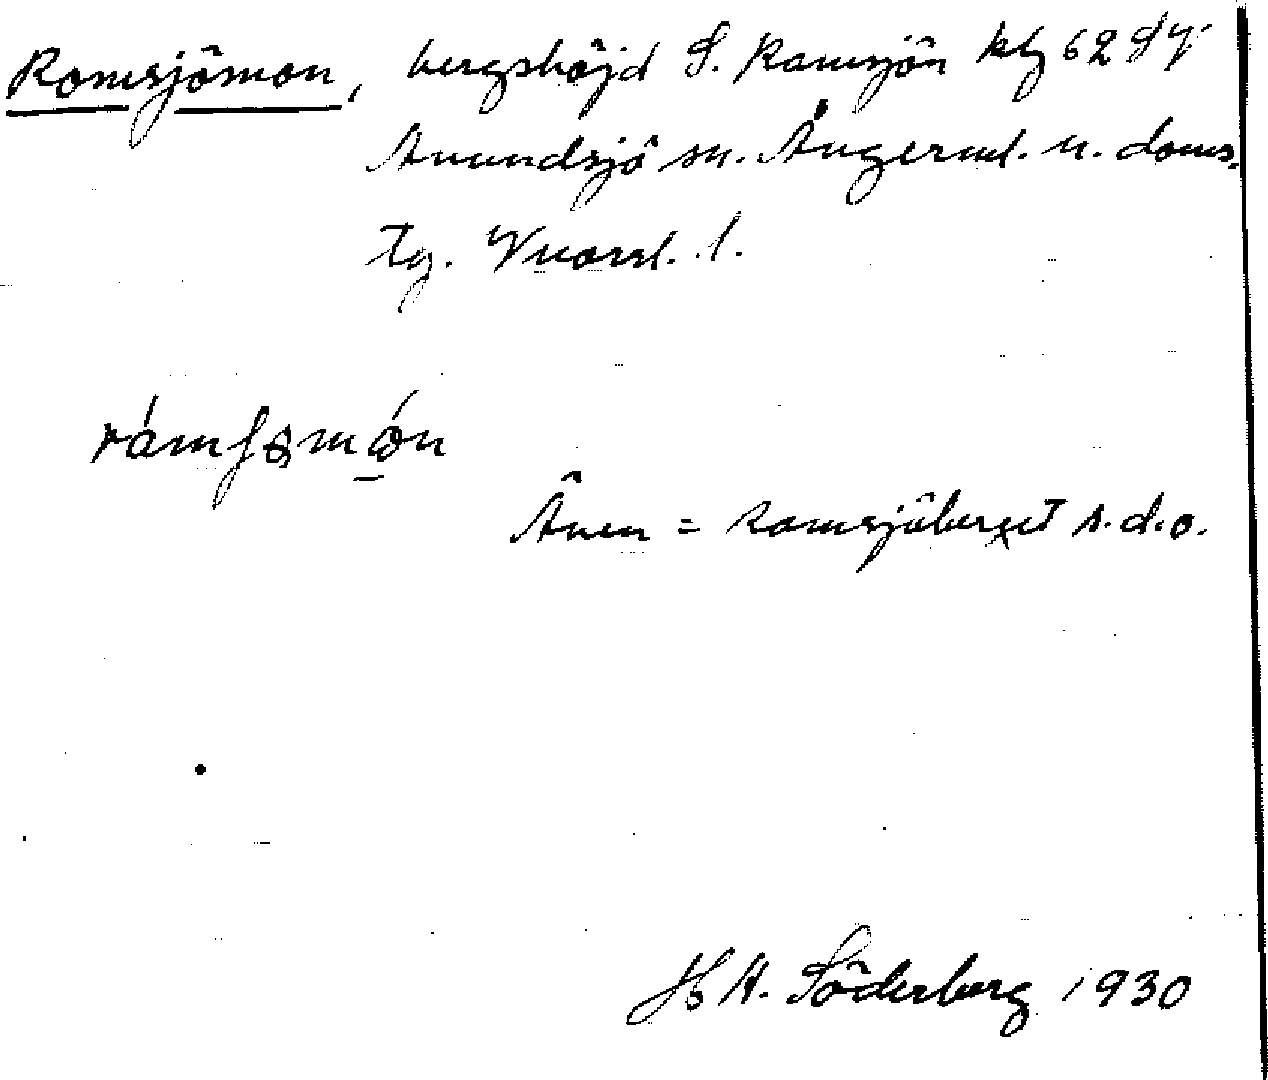 Ramsjömon, bergshöjd S. Ramsjön kbl 62 SV
Anundsjö sn. Ångerml. n. doms.
tg. Vnorrl. l.
rámfsmón
Även = Ramsjöberget s.d.o.
H A. Söderberg 1930